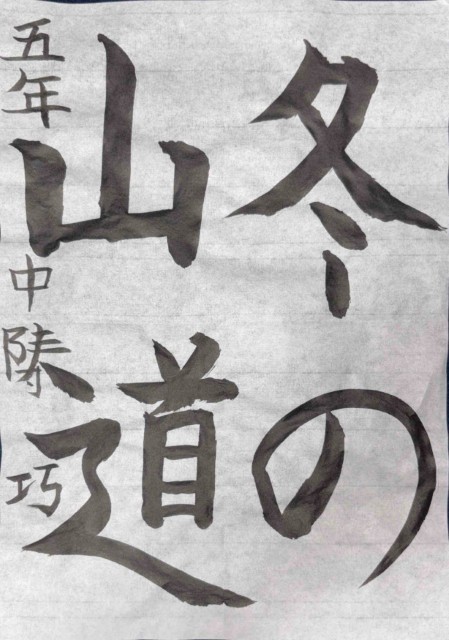 冬の
山道
五年 中陳 巧